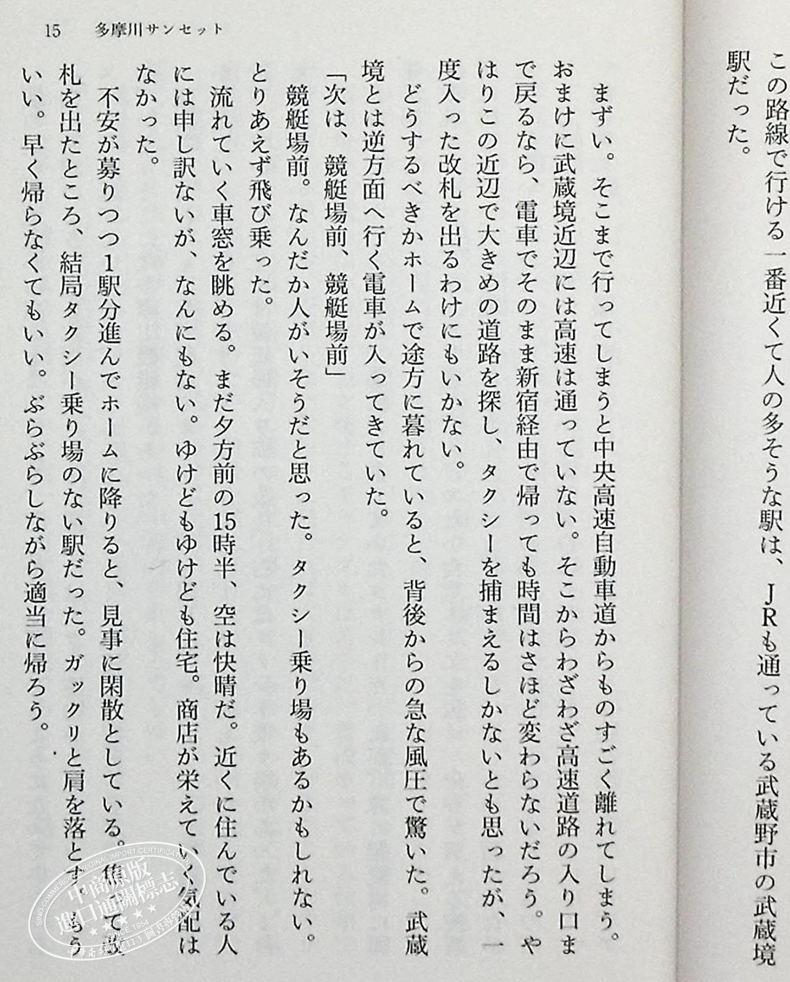 この路線で行ける一番近くて人の多そうな駅は、JRも通っている武蔵野市の武蔵境
駅だった。
15 多摩川サンセット
まずい。そこまで行ってしまうと中央高速自動車道からものすごく離れてしまう。
おまけに武蔵境近辺には高速は通っていない。そこからわざわざ高速道路の入り口ま
で戻るなら、電車でそのまま新宿経由で帰っても時間はさほど変わらないだろう。や
はりこの近辺で大きめの道路を探し、タクシーを捕まえるしかないとも思ったが、一
度入った改札を出るわけにもいかない。
どうするべきかホームで途方に暮れていると、背後からの急な風圧で驚いた。武蔵
境とは逆方面へ行く電車が入ってきていた。
「次は、競艇場前、競艇場前」
競艇場前。なんだか人がいそうだと思った。タクシー乗り場もあるかもしれない。
とりあえず飛び乗った。
流れていく車窓を眺める。まだ夕方前の15時半、空は快晴だ。近くに住んでいる人
には申し訳ないが、なんにもない。ゆけどもゆけども住宅。商店が栄えていく気配は
なかった。
不安が募りつつ1駅分進んでホームに降りると、見事に閑散としている。焦って改
札を出たところ、結局タクシー乗り場のない駅だった。ガックリと肩を落とす。もう
いい。早く帰らなくてもいい。ぶらぶらしながら適当に帰ろう。
中商原版
進口通關標志